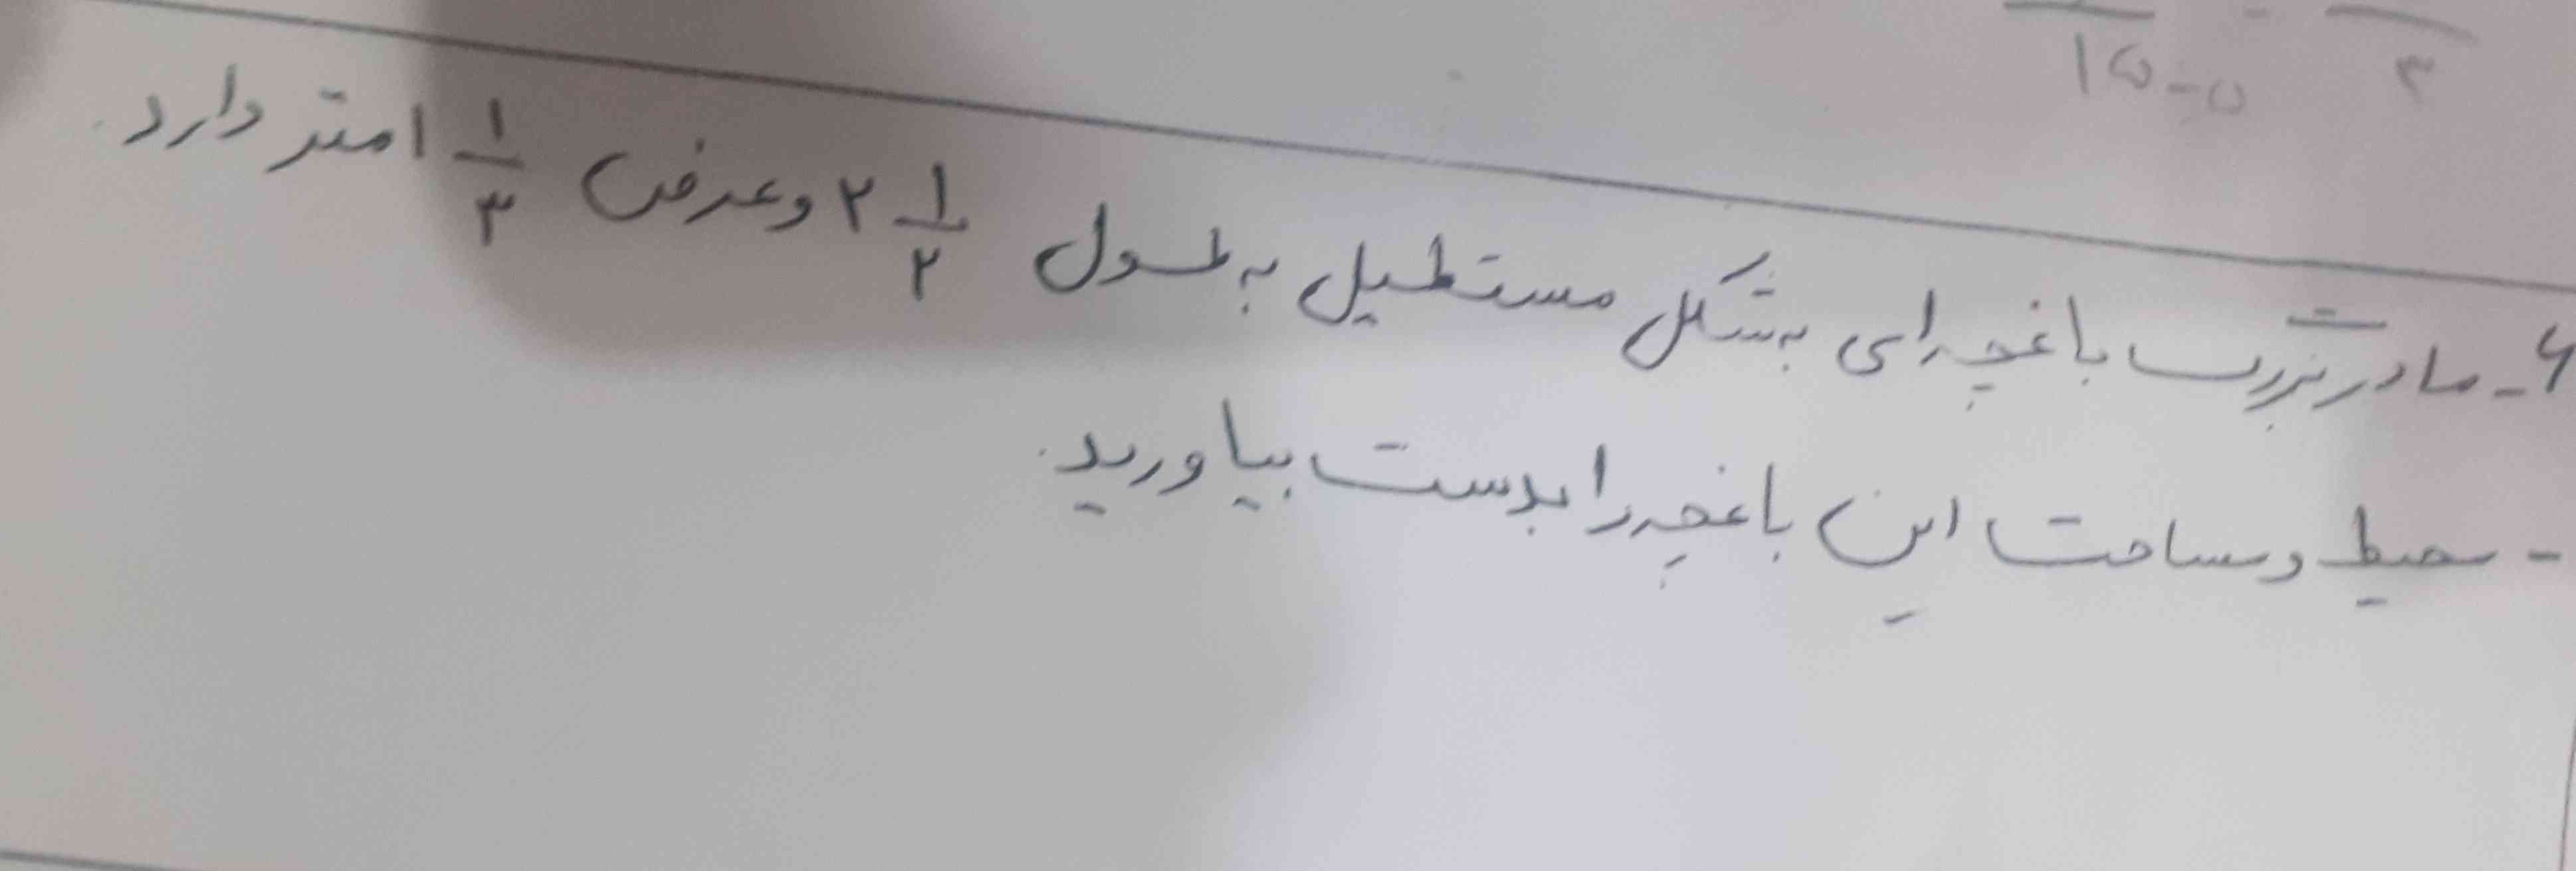 ۳ ۱۵-۵
۶- مادربزرگ باغچه ای به شکل مستطیل به طول ۲ ۱/۲ و عرض ۱ ۱/۳ متر دارد.
- محیط و مساحت این باغچه را بدست بیاورید.